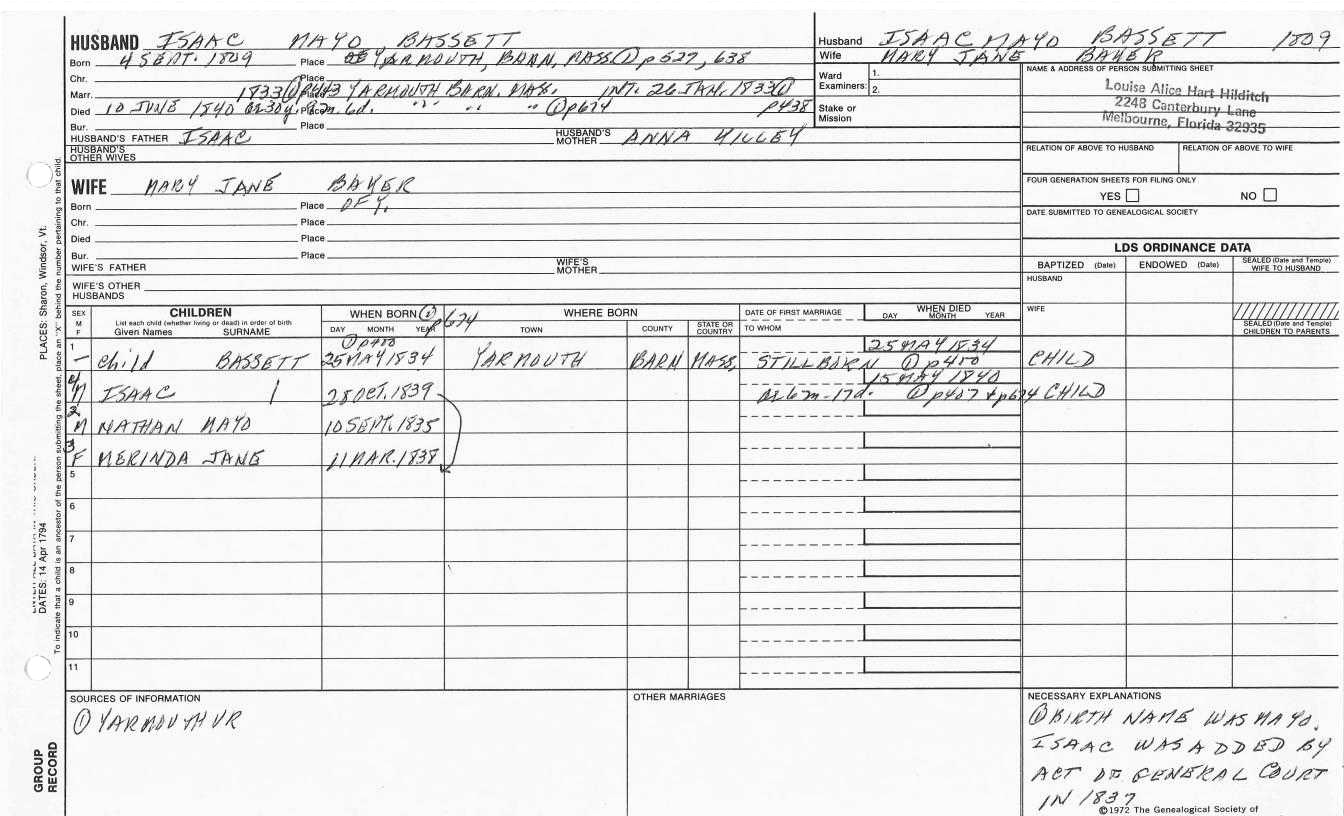 HUSBAND ISAAC MAYO BASSETT
Born 4 SEPT. 1809 Place YARMOUTH, BARN, MASS ① p527, 638
Chr. Place
Marr. 1833 ① p443 Place YARMOUTH BARN. MASS. INT. 26 JAN. 1833 ①
Died 10 JUNE 1840 ae 30y. 9m. 6d. Place " " " ① p674 p438
Bur. Place
HUSBAND'S FATHER ISAAC HUSBAND'S MOTHER ANNA KILLEY
HUSBAND'S OTHER WIVES
Husband ISAAC MAYO BASSETT 1809
Wife MARY JANE BAKER
Ward Examiners: 1.
2.
Stake or Mission
NAME & ADDRESS OF PERSON SUBMITTING SHEET
Louise Alice Hart Hilditch
2248 Canterbury Lane
Melbourne, Florida 32935
RELATION OF ABOVE TO HUSBAND RELATION OF ABOVE TO WIFE
FOUR GENERATION SHEETS FOR FILING ONLY
YES NO
DATE SUBMITTED TO GENEALOGICAL SOCIETY
WIFE MARY JANE BAKER
Born Place OF Y.
Chr. Place
Died Place
Bur. Place
WIFE'S FATHER WIFE'S MOTHER
WIFE'S OTHER HUSBANDS
LDS ORDINANCE DATA
BAPTIZED (Date) ENDOWED (Date) SEALED (Date and Temple) WIFE TO HUSBAND
HUSBAND
WIFE
SEALED (Date and Temple) CHILDREN TO PARENTS
SEX M F
CHILDREN
List each child (whether living or dead) in order of birth
Given Names SURNAME
WHEN BORN ① p674
DAY MONTH YEAR
WHERE BORN
TOWN COUNTY STATE OR COUNTRY
DATE OF FIRST MARRIAGE
TO WHOM
WHEN DIED
DAY MONTH YEAR
① p400 25 MAY 1834
1 – child BASSETT 25 MAY 1834 YARMOUTH BARN MASS, STILLBORN ① p400 CHILD
15 MAY 1840
4 M ISAAC 28 OCT. 1839 ae 6m-17d. ① p407 & p674 CHILD
2 M NATHAN MAYO 10 SEPT. 1835
3 F MERINDA JANE 11 MAR. 1838
5
6
7
8
9
10
11
SOURCES OF INFORMATION
① YARMOUTH VR
OTHER MARRIAGES
NECESSARY EXPLANATIONS
① BIRTH NAME WAS MAYO.
ISAAC WAS ADDED BY
ACT OF GENERAL COURT
IN 1837
©1972 The Genealogical Society of
PLACES: Sharon, Windsor, Vt.
DATES: 14 Apr 1794
To indicate that a child is an ancestor of the person submitting the sheet, place an "X" behind the number pertaining to that child.
GROUP
RECORD